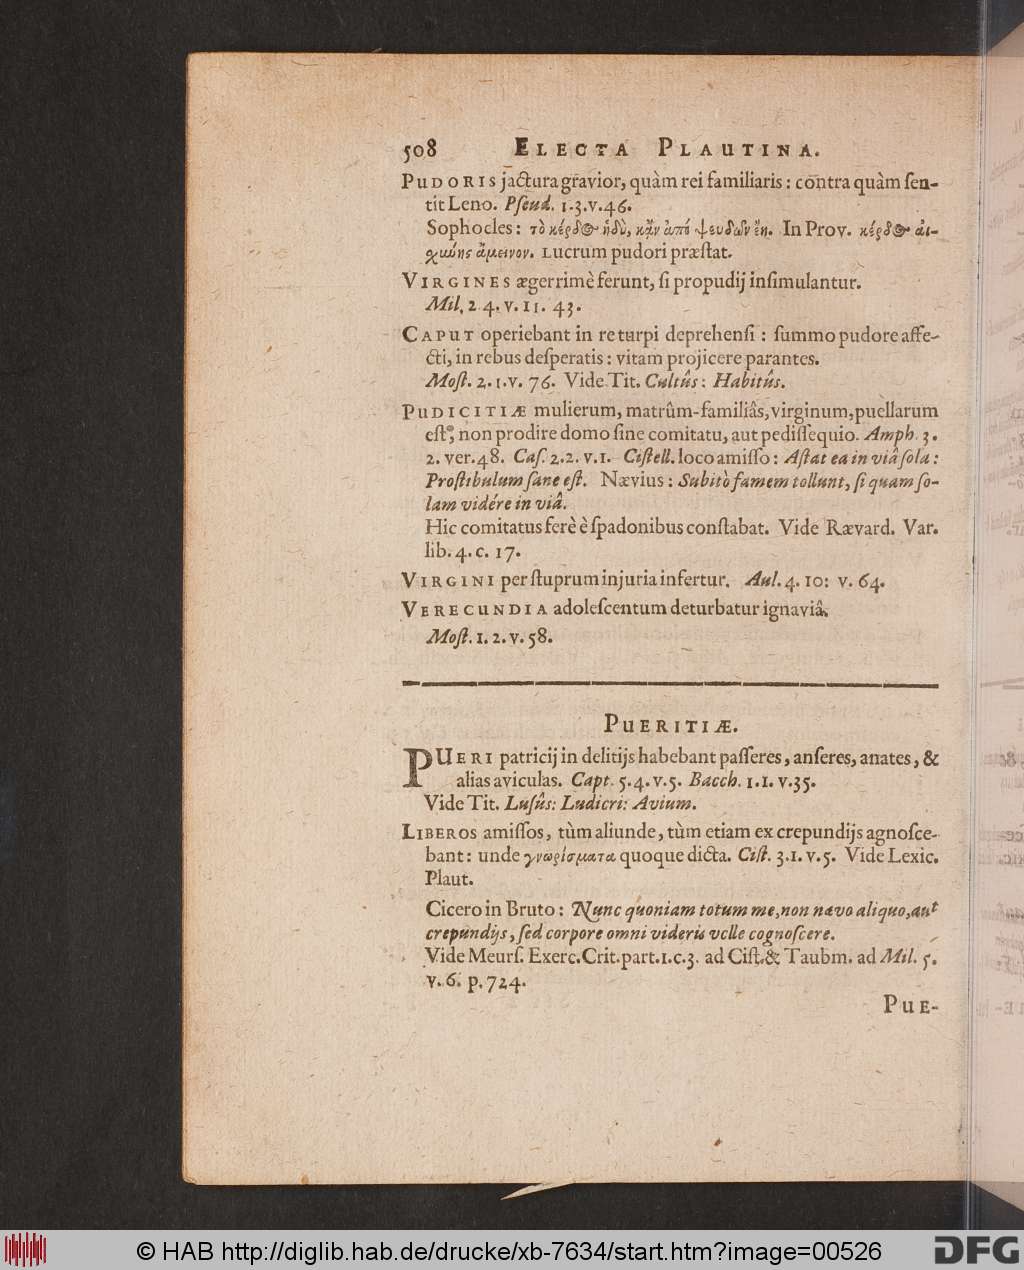 508 ELECTA PLAUTINA.
PUDORIS jactura gravior, quàm rei familiaris: contra quàm ſen-
tit Leno. Pſeud. 1.3.v.46.
Sophocles: τὸ κέρδος ἡδὺ, κἂν ἀπὸ ψευδῶν ἔῃ. In Prov. κέρδος αἰ-
χύνης ἄμεινον. Lucrum pudori præſtat.
VIRGINES ægerrimè ferunt, ſi propudij inſimulantur.
Mil. 2 4. v. 11. 43.
CAPUT operiebant in re turpi deprehenſi: ſummo pudore affe-
cti, in rebus deſperatis: vitam projicere parantes.
Moſt. 2. 1.v. 76. Vide Tit. Cultûs: Habitûs.
PUDICITIÆ mulierum, matrûm-familiâs, virginum, puellarum
eſt, non prodire domo ſine comitatu, aut pediſſequio. Amph. 3.
2. ver.48. Caſ. 2.2. v.1. Ciſtell. loco amiſſo: Aſtat ea in viâ ſola:
Proſtibulum ſane eſt. Nævius: Subitò famem tollunt, ſi quam ſo-
lam vidére in viâ.
Hic comitatus ferè è ſpadonibus conſtabat. Vide Rævard. Var.
lib. 4. c. 17.
VIRGINI per ſtuprum injuria infertur. Aul. 4. 10: v. 64.
VERECUNDIA adoleſcentum deturbatur ignaviâ.
Moſt. 1. 2. v. 58.
PUERITIÆ.
PUERI patricij in delitijs habebant paſſeres, anſeres, anates, &
alias aviculas. Capt. 5.4. v.5. Bacch. 1.1. v.35.
Vide Tit. Luſûs: Ludicri: Avium.
LIBEROS amiſſos, tùm aliunde, tùm etiam ex crepundijs agnoſce-
bant: unde γνωρίσματα quoque dicta. Ciſt. 3.1. v.5. Vide Lexic.
Plaut.
Cicero in Bruto: Nunc quoniam totum me, non nævo aliquo, aut
crepundijs, ſed corpore omni videris velle cognoſcere.
Vide Meurſ. Exerc. Crit. part. 1. c.3. ad Ciſt. & Taubm. ad Mil. 5.
v. 6. p. 724.
PUE-
© HAB http://diglib.hab.de/drucke/xb-7634/start.htm?image=00526
DFG